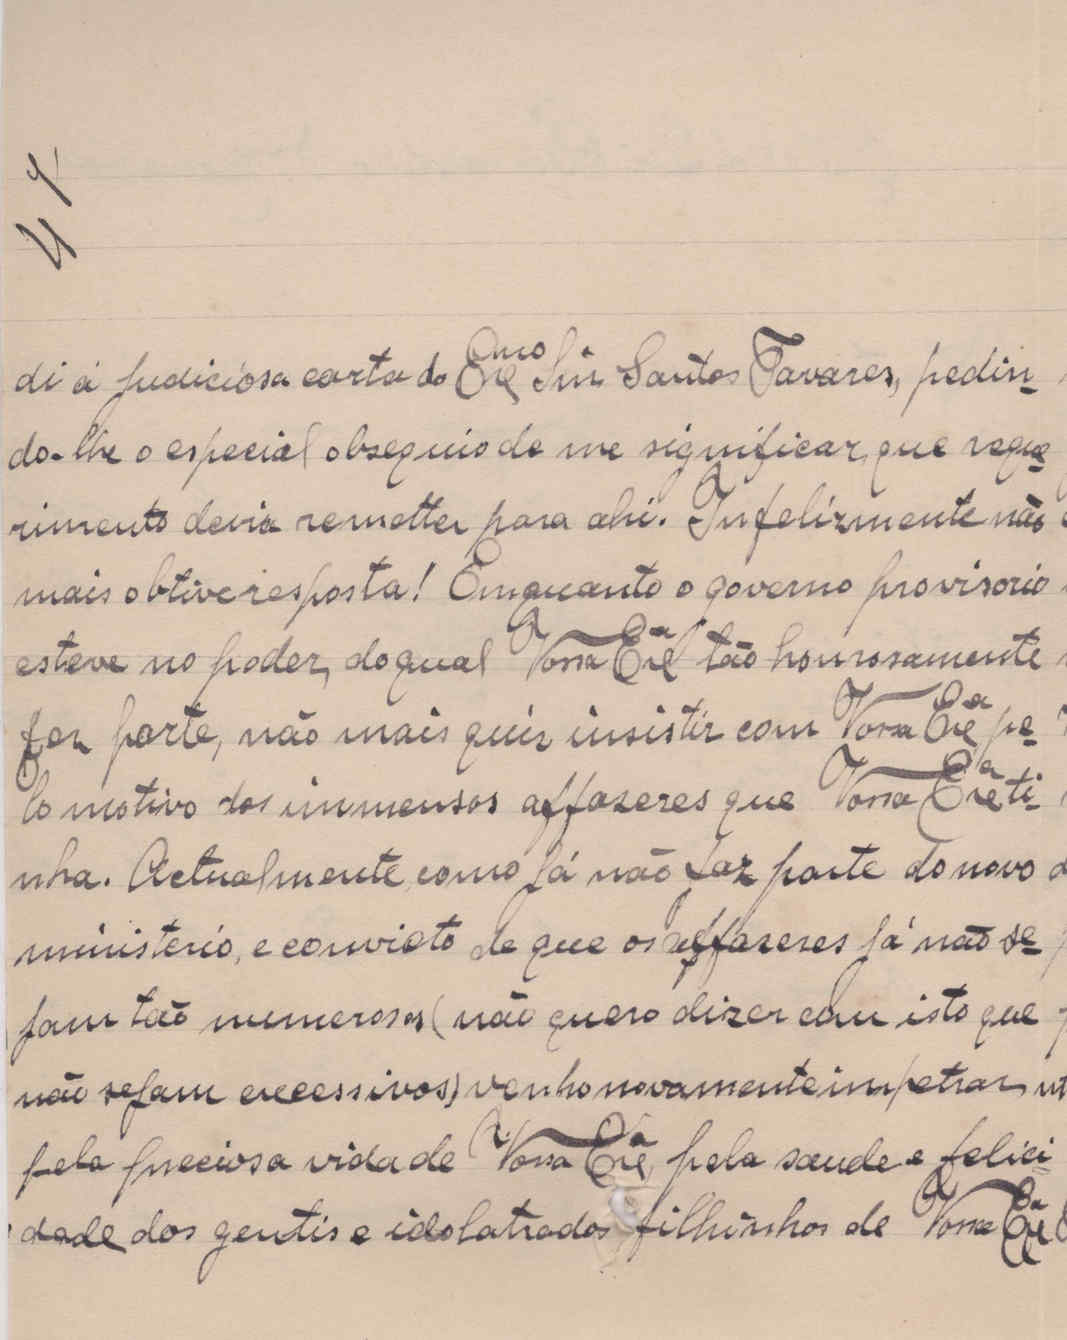 41
di á judiciosa carta do Exmo Snr Santos Tavares, pedin-
do-lhe o especial obsequio de me significar, que reque-
rimento devia remetter para ahi. Infelizmente não
mais obtive resposta! Emquanto o governo provisorio
esteve no poder, do qual Vossa Exa tão honrosamente
fez parte, não mais quiz insistir com Vossa Exa pe-
lo motivo dos immensos affazeres que Vossa Exa ti-
nha. Actualmente, como já não faz parte do novo
ministerio, e convicto de que os affazeres já não se-
jam tão numerosos (não quero dizer com isto que
não sejam excessivos) venho novamente impetrar,
pela preciosa vida de Vossa Exa, pela saude e felici-
dade dos gentis e idolatrados filhinhos de Vossa Exa